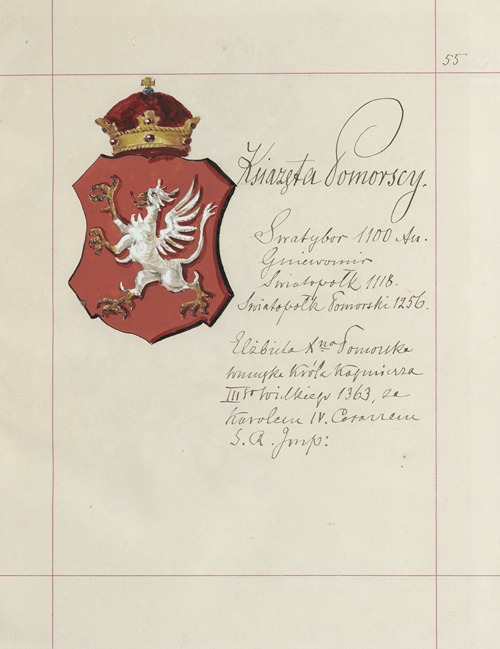 55
Książęta Pomorscy.
Swatybor 1100 An.
Gniewomir
Światopołk 1118.
Światopołk Pomorski 1256.
Elżbieta Xna Pomorska
wnuczka Króla Kazmierza
IIIgo Wielkiego 1363, za
Karolem IV. Cesarzem
S. R. Jmp: